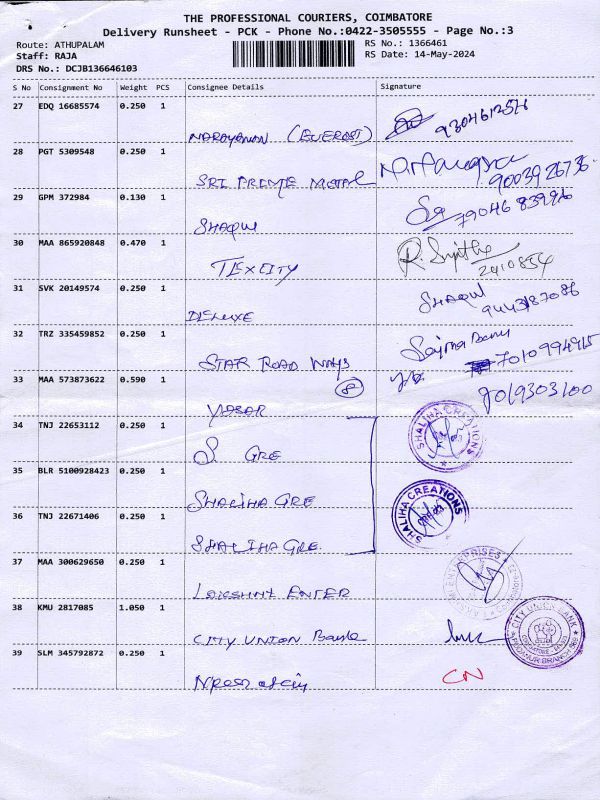 THE PROFESSIONAL COURIERS, COIMBATORE
Delivery Runsheet - PCK - Phone No.:0422-3505555 - Page No.:3
Route: ATHUPALAM
RS No.: 1366461
Staff: RAJA
RS Date: 14-May-2024
DRS No.: DCJB136646103
S No Consignment No Weight PCS Consignee Details Signature
27 EDQ 16685574 0.250 1
NARAYANAN (EVEREST)
28 PGT 5309548 0.250 1
SRI PRIME METAL 9003926736
29 GPM 372984 0.130 1
SHAQUL 79046 83996
30 MAA 865920848 0.470 1
TEXCITY R. Sujitha
2410854
31 SVK 20149574 0.250 1 SHAQUL
DELUXE 9443187086
32 TRZ 335459852 0.250 1
STAR ROAD WAYS 7010994915
33 MAA 573873622 0.590 1 8
YASAR 7019303100
34 TNJ 22653112 0.250 1
S. GRE SHALIHA CREATIONS
35 BLR 5100928423 0.250 1
SHALIHA GRE SHALIHA CREATIONS
36 TNJ 22671406 0.250 1
SHALIHA GRE
37 MAA 300629650 0.250 1 ENTERPRISES
LAKSHMI ENTER
38 KMU 2817085 1.050 1
CITY UNION Bank CITY UNION BANK
39 SLM 345792872 0.250 1
CN